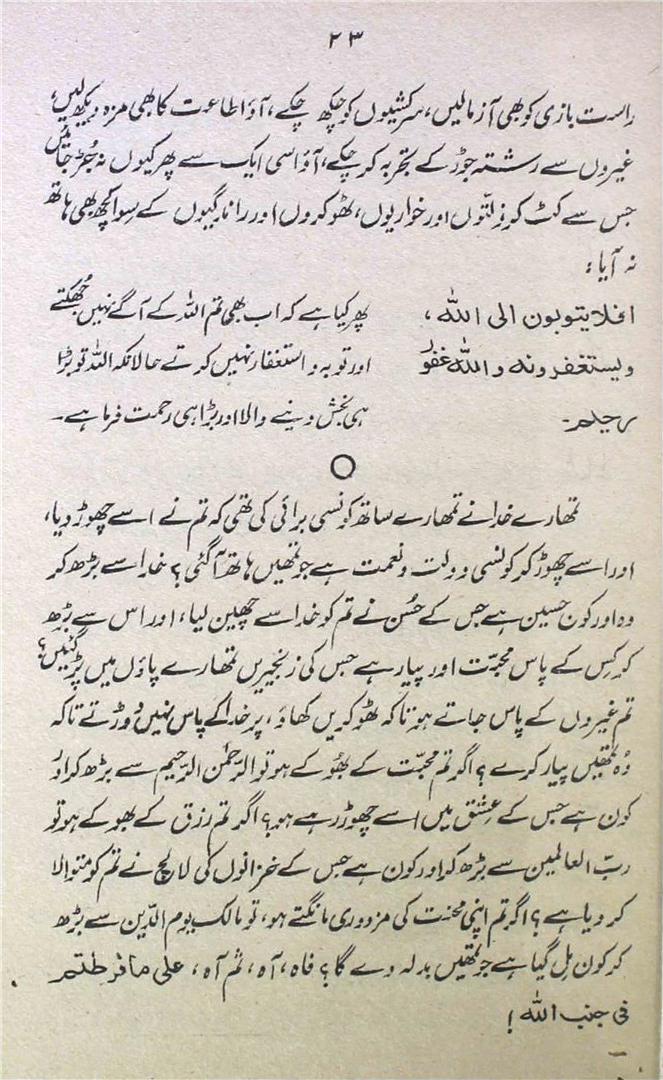 ۲۳
راست بازی کو بھی آزمالیں، سرکشیوں کو چکھ چکے، آؤ اطاعت کا بھی مزہ دیکھ لیں،
غیروں سے رشتہ جوڑ کے تجربہ کر چکے، آؤ اسی ایک سے پھر کیوں نہ جُڑ جائیں
جس سے کٹ کر ذلّتوں اور خواریوں، ٹھوکروں اور راندگیوں کے سوا کچھ بھی ہاتھ
نہ آیا:
افلا یتوبون الی اللہ،
ویستغفرونہ واللہ غفور
رحیم۔
پھر کیا ہے کہ اب بھی تم اللہ کے آگے نہیں جُھکتے
اور توبہ و استغفار نہیں کرتے حالانکہ اللہ تو بڑا
ہی بخش دینے والا اور بڑا ہی رحمت فرما ہے۔
تمھارے خدا نے تمھارے ساتھ کونسی برائی کی تھی کہ تم نے اسے چھوڑ دیا،
اور اسے چھوڑ کر کونسی دولت و نعمت ہے جو تمھیں ہاتھ آگئی؟ خدا سے بڑھ کر
وہ اور کون حسین ہے جس کے حُسن نے تم کو خدا سے چھین لیا، اور اس سے بڑھ
کر کِس کے پاس محبّت اور پیار ہے جس کی زنجیریں تمھارے پاؤں میں پڑ گئیں؟
تم غیروں کے پاس جاتے ہو تاکہ ٹھوکریں کھاؤ، پر خدا کے پاس نہیں دوڑتے تاکہ
وُہ تمھیں پیار کرے؟ اگر تم محبّت کے بھُوکے ہو تو الرحمٰن الرحیم سے بڑھ کر اور
کون ہے جس کے عِشق میں اسے چھوڑ رہے ہو؟ اگر تم رزق کے بھوکے ہو تو
ربّ العالمین سے بڑھ کر اور کون ہے جس کے خزانوں کی لالچ نے تم کو متوالا
کر دیا ہے؟ اگر تم اپنی محنت کی مزدوری مانگتے ہو، تو مالک یوم الدّین سے بڑھ
کر کون مِل گیا ہے جو تمھیں بدلہ دے گا؟ فاہ، آہ، ثم آہ، علی ما فرطتم
فی جنب اللہ!